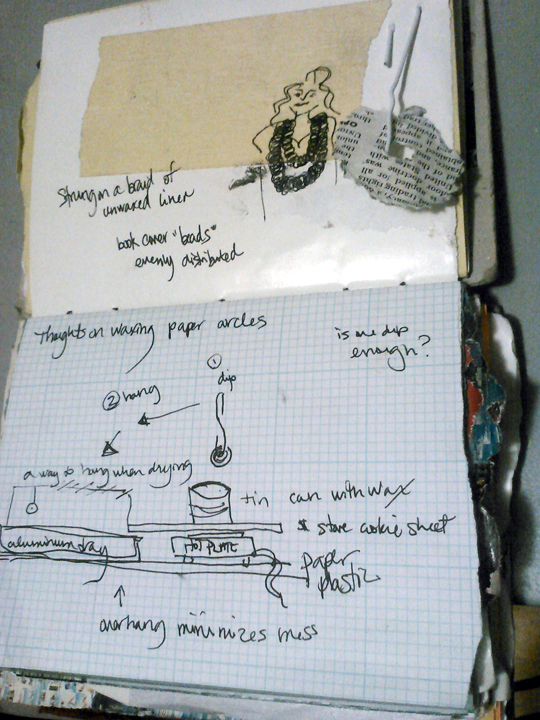 Strung on a braid of
unwaxed linen
book cover "beads"
evenly distributed
Thoughts on waxing paper circles
is one dip
enough?
① dip
② hang
a way to hang when drying
tin can with wax
$ store cookie sheet
aluminum tray
HOT PLATE
paper
plastic
overhang minimizes mess